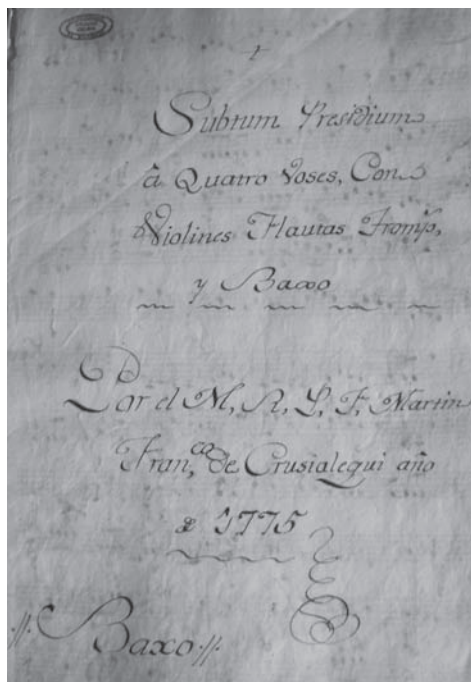 Subtum Presidium
â Quatro Voses, Con
Violines Flautas Tromp.s,
y Baxo
Por el M, R, P, F, Martin
Fran,co de Crusialegui año
de 1775
.//. Baxo .//.